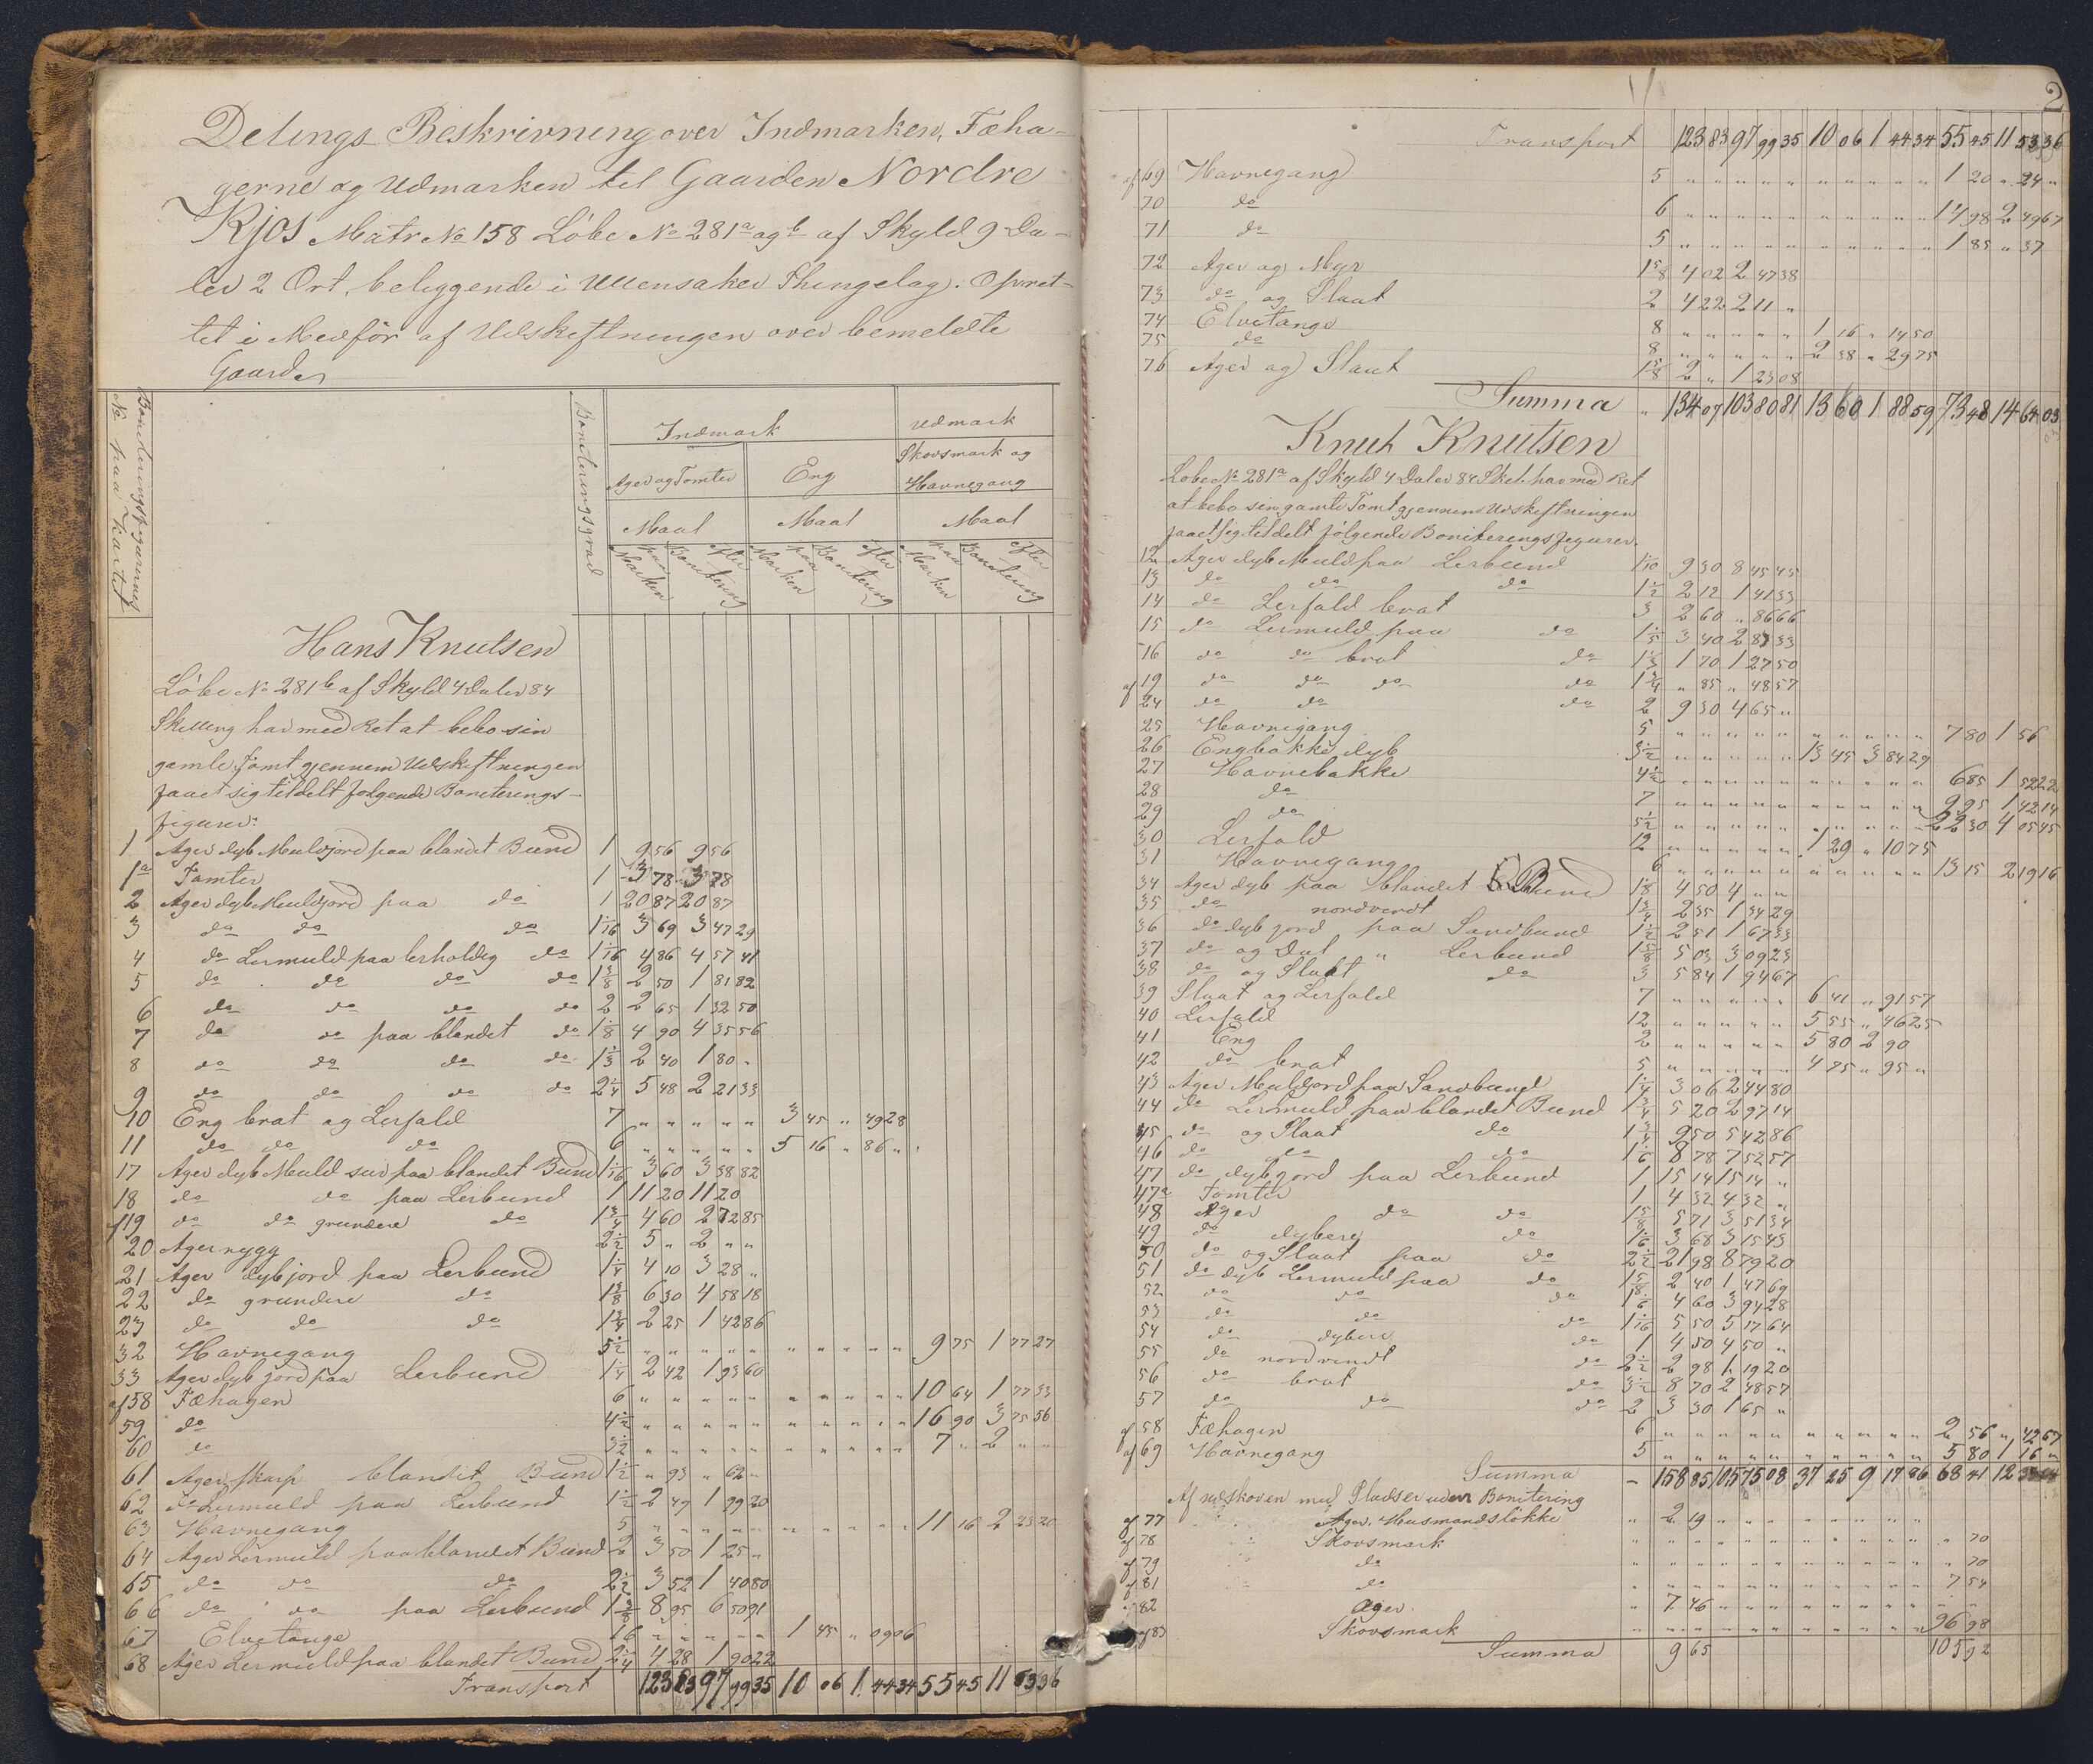 Delings Beskrivning over Indmarken, Fæha-
gerne og Udmarken til Gaarden Nordre
Kjos Matr No 158 Löbe No 281a og b af Skyld 9 Da-
ler 2 Ort, beliggende i Ullensaker Thingelag. Opret-
tet i Medför af Udskiftningen over bemeldte
Gaard.
Boniteringsfigurernes No paa Kartet
Boniteringsgrad
Indmark Udmark
Ager og Tomter Eng Skovsmark og Havnegang
Maal Maal Maal
paa Marken efter Bonitering paa Marken efter Bonitering paa Marken efter Bonitering
Hans Knutsen
Löbe No 281b af Skyld 4 Daler 84
Skilling har med Ret at bebo sin
gamle Tomt gjennem Udskiftningen
faaet sig tildelt følgende Boniterings-
figurer:
1 Ager dyb Muldjord paa blandet Bund 1 9 56 9 56
1a Tomter 1 3 78 3 78
2 Ager dyb Muldjord paa do 1 20 87 20 87
3 do do do 1 1/16 3 69 3 47 29
4 do Lermuld paa lerholdig do 1 1/16 4 86 4 57 41
5 do do do do 1 3/8 2 50 1 81 82
6 do do do do 2 2 65 1 32 50
7 do do paa blandet do 1 1/8 4 90 4 35 56
8 do do do do 1 1/3 2 40 1 80 "
9 do do do do 2 1/4 5 48 2 21 33
10 Eng brat og Lerfald 7 " " " " " 3 45 " 49 28
11 do do do 6 " " " " " 5 16 " 86 "
17 Ager dyb Muld sur paa blandet Bund 1 1/16 3 60 3 38 82
18 do do paa Lerbund 1 11 20 11 20
af 19 do do grundere do 1 3/4 4 60 2 72 85
20 Ager nygg 2 1/2 5 " 2 " "
21 Ager dyb jord paa Lerbund 1 1/4 4 10 3 28 "
22 do grundere do 1 3/8 6 30 4 58 18
23 do do do 1 3/4 2 25 1 42 86
32 Havnegang 5 1/2 " " " " " " " " " " 9 75 1 77 27
33 Ager dyb jord paa Lerbund 1 1/4 2 42 1 93 60
af 58 Fæhagen 6 " " " " " " " " " " 10 64 1 77 33
59 do 4 1/2 " " " " " " " " " " 16 90 3 75 56
60 do 3 1/2 " " " " " " " " " " 7 " 2 " "
61 Ager skarp blandet Bund 1 1/2 " 93 " 62 "
62 do Lermuld paa Lerbund 1 1/2 2 49 1 99 20
63 Havnegang 5 " " " " " " " " " " 11 16 2 23 20
64 Ager Lermuld paa blandet Bund 2 3 50 1 25 "
65 do do do 2 1/2 3 52 1 40 80
66 do do paa Lerbund 1 3/8 8 95 6 50 91
67 Elvetange 16 " " " " " 1 45 " 09 06
68 Ager Lermuld paa blandet Bund 2 1/4 4 28 1 90 22
Transport 123 83 97 99 35 10 06 1 44 34 55 45 11 53 36
2
Transport 123 83 97 99 35 10 06 1 44 34 55 45 11 53 36
af 69 Havnegang 5 " " " " " " " " " " 1 20 " 24 "
70 do 6 " " " " " " " " " " 14 98 2 49 67
71 do 5 " " " " " " " " " " 1 85 " 37
72 Ager og Myr 1 5/8 4 02 2 47 38
73 do og Slaat 2 4 22 2 11 "
74 Elvetange 8 " " " " " 1 16 " 14 50
75 do 8 " " " " " 2 38 " 29 75
76 Ager og Slaat 1 5/8 2 " 1 23 08
Summa " 134 07 103 80 81 13 60 1 88 59 73 48 14 64 03
Knut Knutsen
Løbe No 281a af Skyld 4 Daler 84 Skil. har med Ret
at bebo sin gamle Tomt gjennem Udskiftningen
faaet sig tildelt følgende Boniterings figurer.
12 Ager dyb Muld paa Lerbund 1 1/10 9 30 8 45 45
13 do do do 1 1/2 2 12 1 41 33
14 do Lerfald brat 3 2 60 " 86 66
15 do Lermuld paa do 1 1/5 3 40 2 83 33
16 do do brat do 1 1/3 1 70 1 27 50
af 19 do do do do 1 3/4 " 85 " 48 57
24 do do do 2 9 30 4 65 "
25 Havnegang 5 " " " " " " " " " " 7 80 1 56
26 Engbakke dyb 3 1/2 " " " " " 13 45 3 84 29
27 Havnebakke 4 1/2 " " " " " " " " " " 6 85 1 52 22
28 do 7 " " " " " " " " " " 9 95 1 42 14
29 do 5 1/2 " " " " " " " " " " 22 30 4 05 45
30 Lerfald 12 " " " " " 1 29 " 10 75
31 Havnegang 6 " " " " " " " " " " 13 15 2 19 16
34 Ager dyb paa blandet Bund 1 1/8 4 50 4 " "
35 do nordvendt 1 3/4 2 35 1 34 29
36 do dyb jord paa Sandbund 1 1/2 2 51 1 67 33
37 do og Dal " Lerbund 1 5/8 5 03 3 09 23
38 do og Slaat do 3 5 84 1 94 67
39 Slaat og Lerfald 7 " " " " " 6 41 " 91 57
40 Lerfald 12 " " " " " 5 55 " 46 25
41 Eng 2 " " " " " 5 80 2 90
42 do brat 5 " " " " " 4 75 " 95 "
43 Ager Muldjord paa Sandbund 1 1/4 3 06 2 44 80
44 do Lermuld paa blandet Bund 1 3/4 5 20 2 97 14
45 do og Slaat do 1 3/4 9 50 5 42 86
46 do do do 1 1/6 8 78 7 52 57
47 do dyb jord paa Lerbund 1 15 14 15 14 "
47a Tomter 1 4 32 4 32 "
48 Ager do do 1 5/8 5 71 3 51 34
49 do dybere do 1 1/6 3 68 3 15 43
50 do og Slaat paa do 2 1/2 21 98 8 79 20
51 do dyb Lermuld paa do 1 5/8 2 40 1 47 69
52 do do do 1 1/6 4 60 3 94 28
53 do do do 1 1/16 5 50 5 17 64
54 do dybere do 1 4 50 4 50 "
55 do nordvendt do 2 1/2 2 98 1 19 20
56 do brat do 3 1/2 8 70 2 48 57
57 do do do 2 3 30 1 65 "
af 58 Fæhagen 6 " " " " " " " " " " 2 56 " 42 67
af 69 Havnegang 5 " " " " " " " " " " 5 80 1 16 "
Summa - 158 85 105 75 08 37 25 9 17 86 68 41 12
Af udskoven med Pladser uden Bonitering
af 77 Ager. Husmandsløkke " 2 19 " " " " " " " "
af 78 Skovsmark " " " " " " " " " " " " 70
af 79 do " " " " " " " " " " " " 70
af 81 do " " " " " " " " " " " 7 54
82 Ager " 7 46 " " " " " " " " " "
af 83 Skovsmark " " " " " " " " " " " 96 98
Summa 9 65 105 92